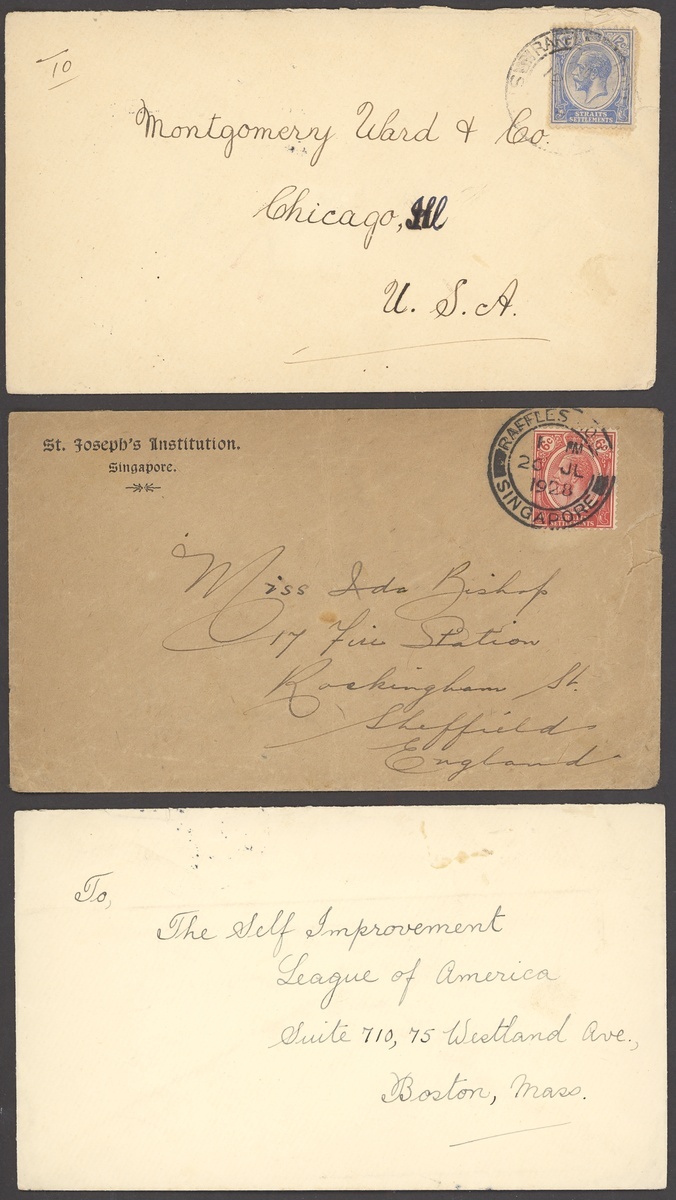 To
Montgomery Ward & Co.
Chicago, Ill
U. S. A.
STRAITS
SETTLEMENTS
St. Joseph's Institution.
Singapore.
RAFFLES
1
JL
1928
SINGAPORE
SETTLEMENTS
Miss Ida Bishop
17 Fire Station
Rockingham St.
Sheffield
England
To,
The Self Improvement
League of America
Suite 710, 75 Westland Ave.,
Boston, Mass.